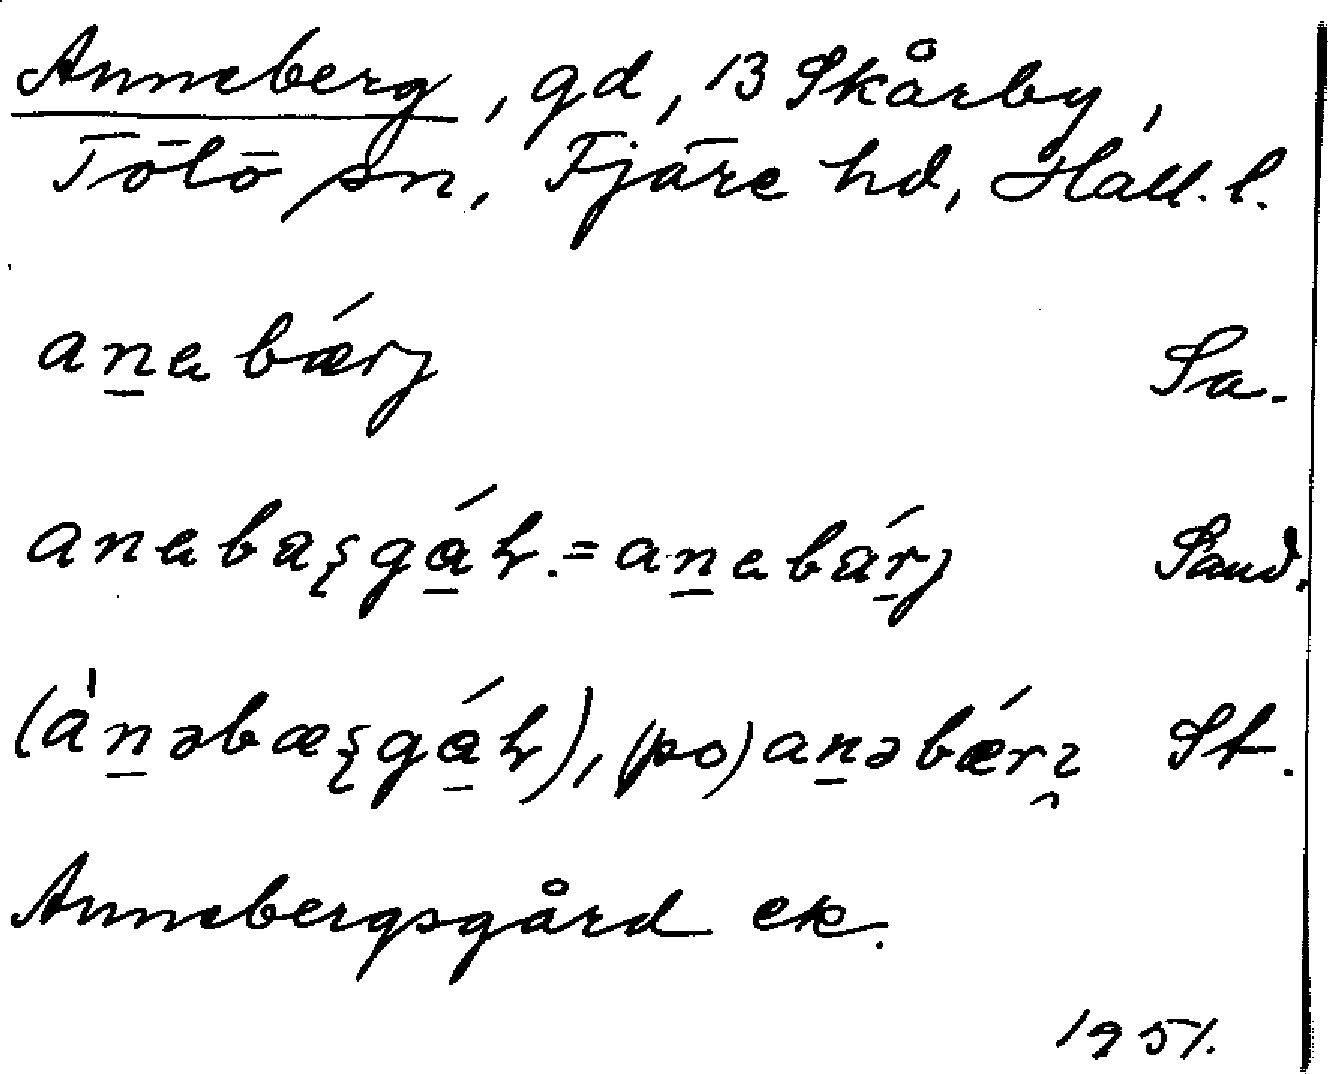 Anneberg, gd, 13 Skårby,
Tölö sn, Fjäre hd, Hall. l.
an̲abǽrj Sa.
anabaȿgá̲ɦ. = an̲abár̲j Sand.
(àn̲əbæȿgá̲ɦ), (po) an̲əbǽrʒ̑ St.
Annebergsgård ek.
1951.